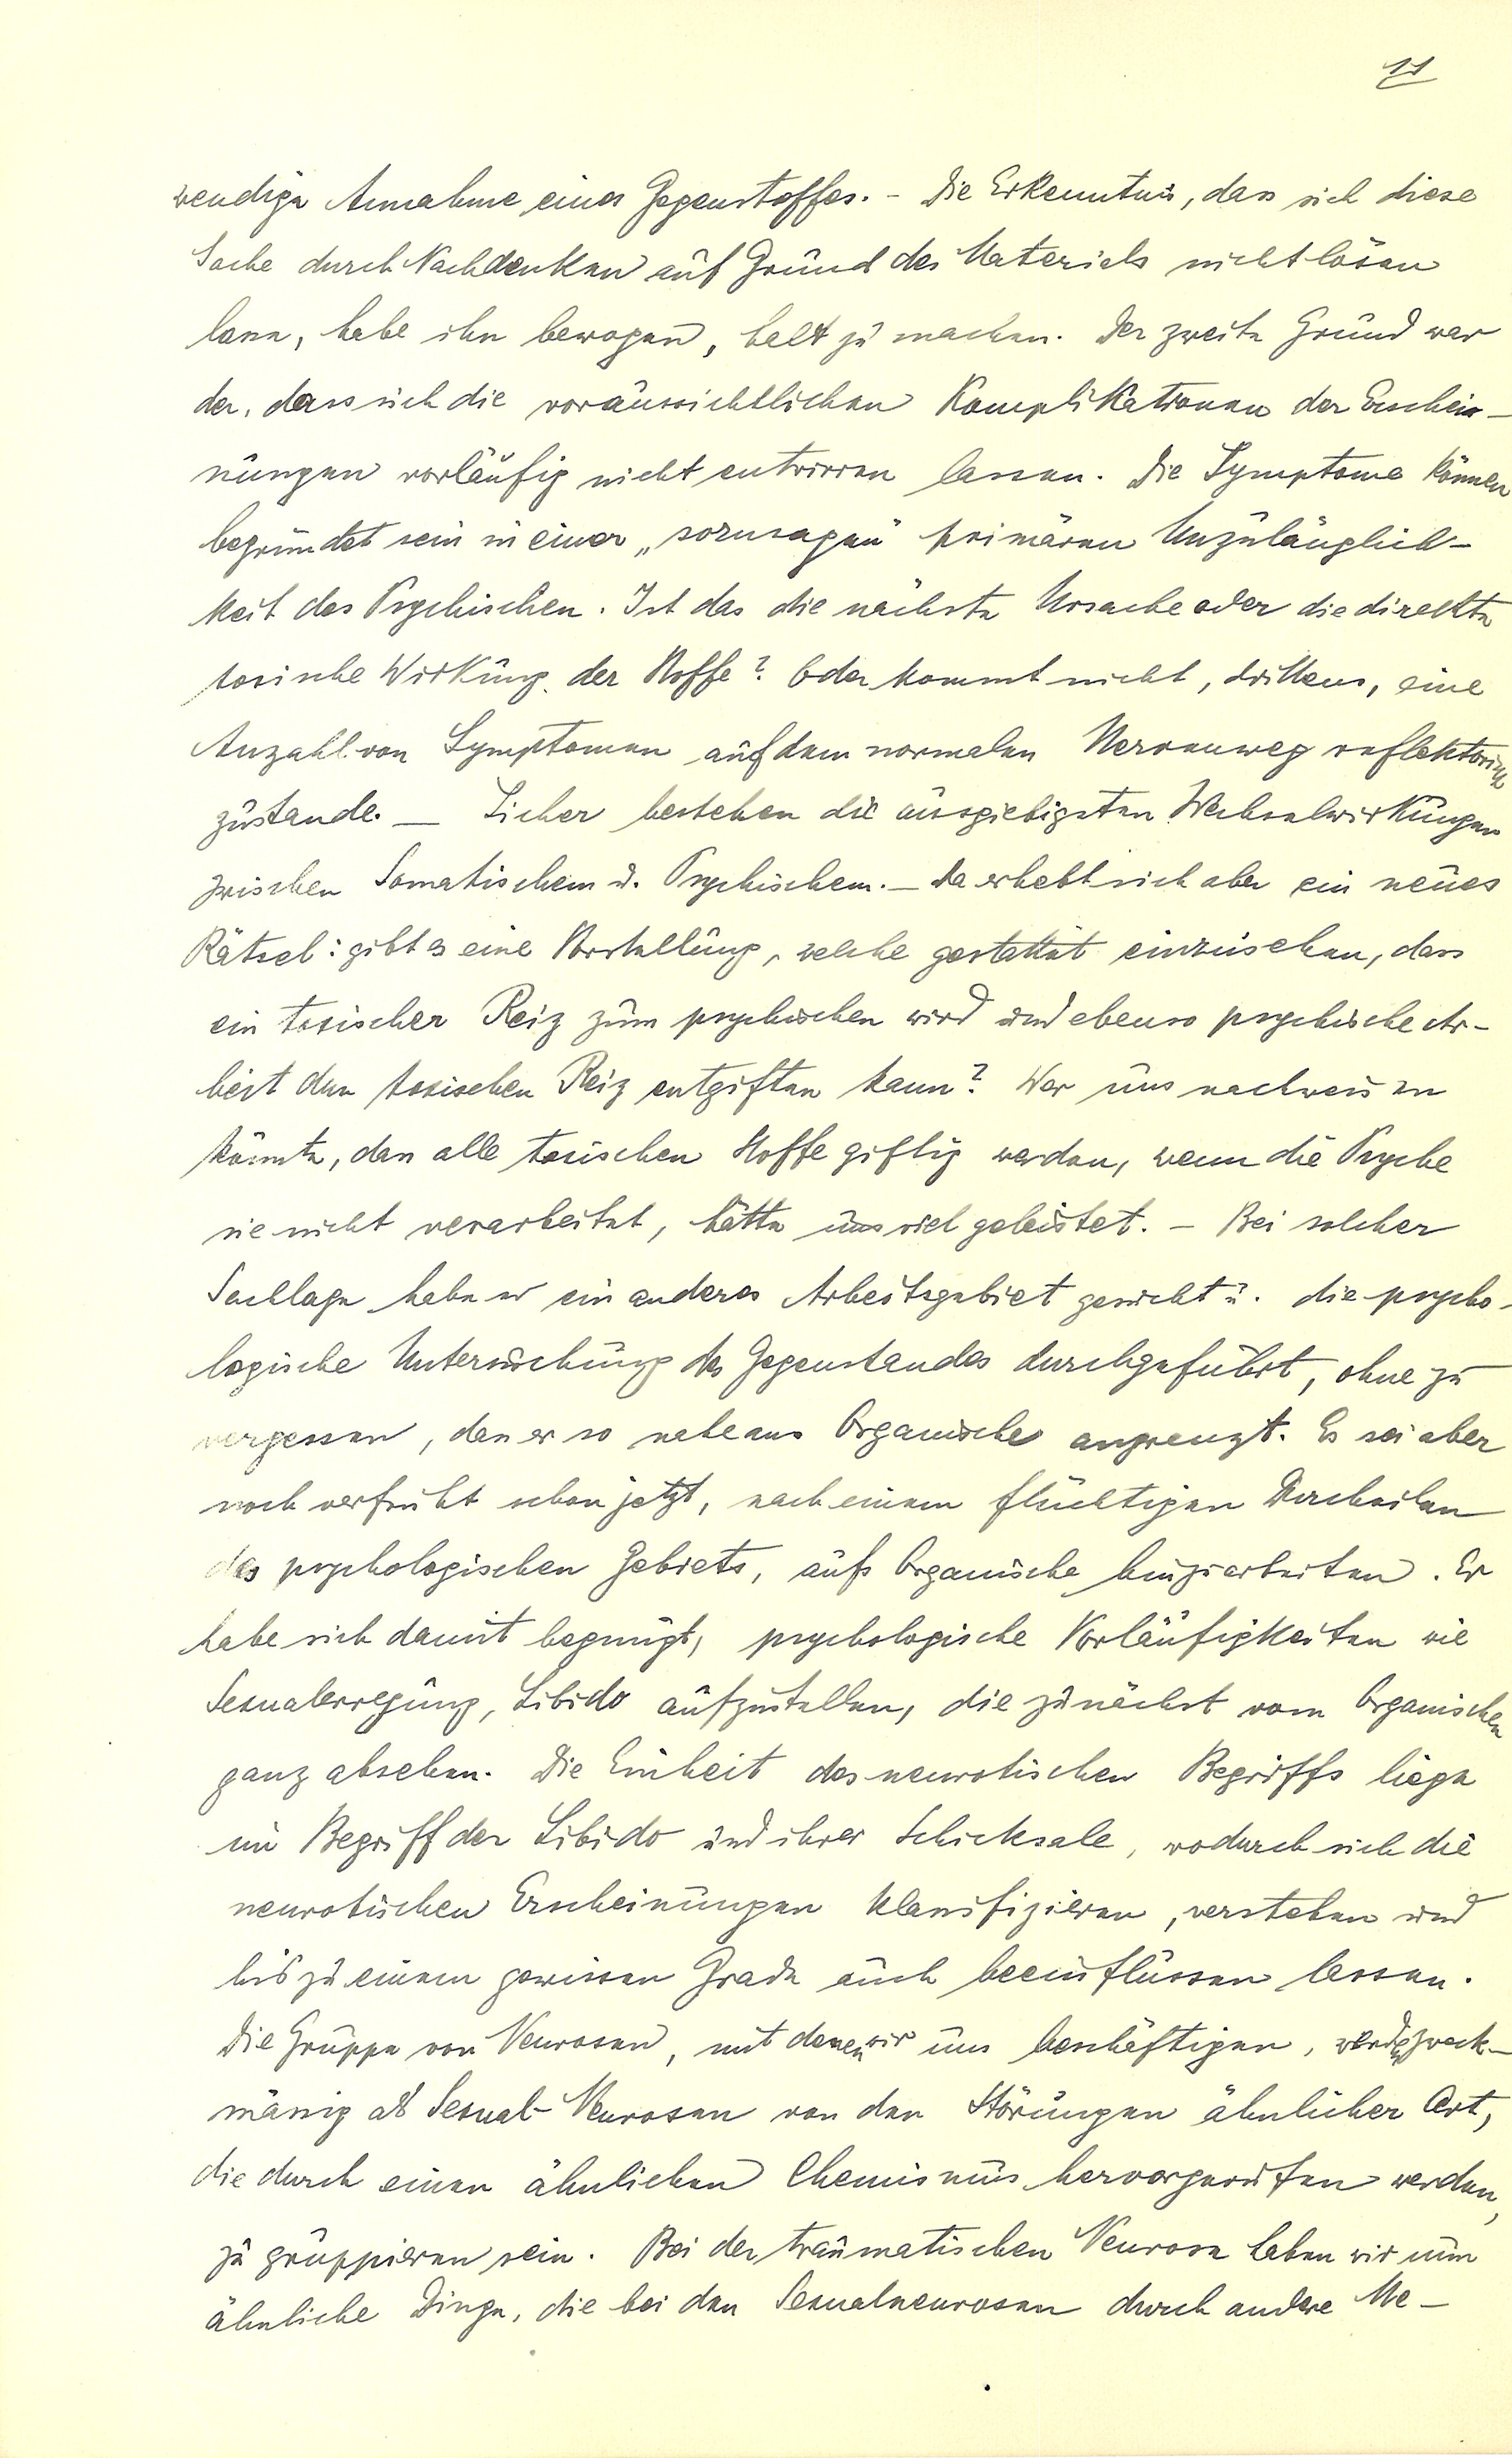 11
wendige Annahme eines Gegenstoffes. – Die Erkenntnis, dass sich diese
Sache durch Nachdenken auf Grund des Materials nicht lösen
lasse, habe ihn bewogen, halt zu machen. Der zweite Grund war
der, dass sich die voraussichtlichen Komplikationen der Erschei-
nungen vorläufig nicht entwirren lassen. Die Symptome können
begründet sein in einer „sozusagen" primären Unzulänglich-
keit des Psychischen. Ist das die nächste Ursache oder die direkte
toxische Wirkung der Stoffe? Oder kommt nicht, drittens, eine
Anzahl von Symptomen auf dem normalen Nervenweg reflektorisch
zustande. – Sicher bestehen die ausgiebigsten Wechselwirkungen
zwischen Somatischem u. Psychischem. – Da erhebt sich aber ein neues
Rätsel: gibt es eine Vorstellung, welche gestattet einzusehen, dass
ein toxischer Reiz zum psychischen wird und ebenso psychische Ar-
beit den toxischen Reiz entgiften kann? Wer uns nachweisen
könnte, dass alle toxischen Stoffe giftig werden, wenn die Psyche
sie nicht verarbeitet, hätte uns viel geleistet. – Bei solcher
Sachlage habe er ein anderes Arbeitsgebiet gesucht u. die psycho-
logische Untersuchung des Gegenstandes durchgeführt, ohne zu
vergessen, dass er so nahe ans Organische angrenzt. Es sei aber
noch verfrüht schon jetzt, nach einem flüchtigen Durcheilen
des psychologischen Gebiets, aufs Organische hinzuarbeiten. Er
habe sich damit begnügt, psychologische Vorläufigkeiten wie
Sexualerregung, Libido aufzustellen, die zunächst vom Organischen
ganz absehen. Die Einheit des neurotischen Begriffs liege
im Begriff der Libido und ihrer Schicksale, wodurch sich die
neurotischen Erscheinungen klassifizieren, verstehen und
bis zu einem gewissen Grade auch beeinflussen lassen.
Die Gruppe von Neurosen, mit denen wir uns beschäftigen, werden zweck-
mässig als Sexual-Neurosen von den Störungen ähnlicher Art,
die durch einen ähnlichen Chemismus hervorgerufen werden,
zu gruppieren sein. Bei der traumatischen Neurose haben wir nun
ähnliche Dinge, die bei den Sexualneurosen durch andere Me-